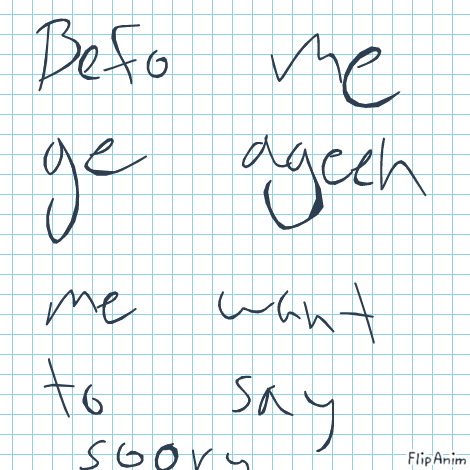 Befo me
ge ageen
me want
to say
soory
FlipAnim